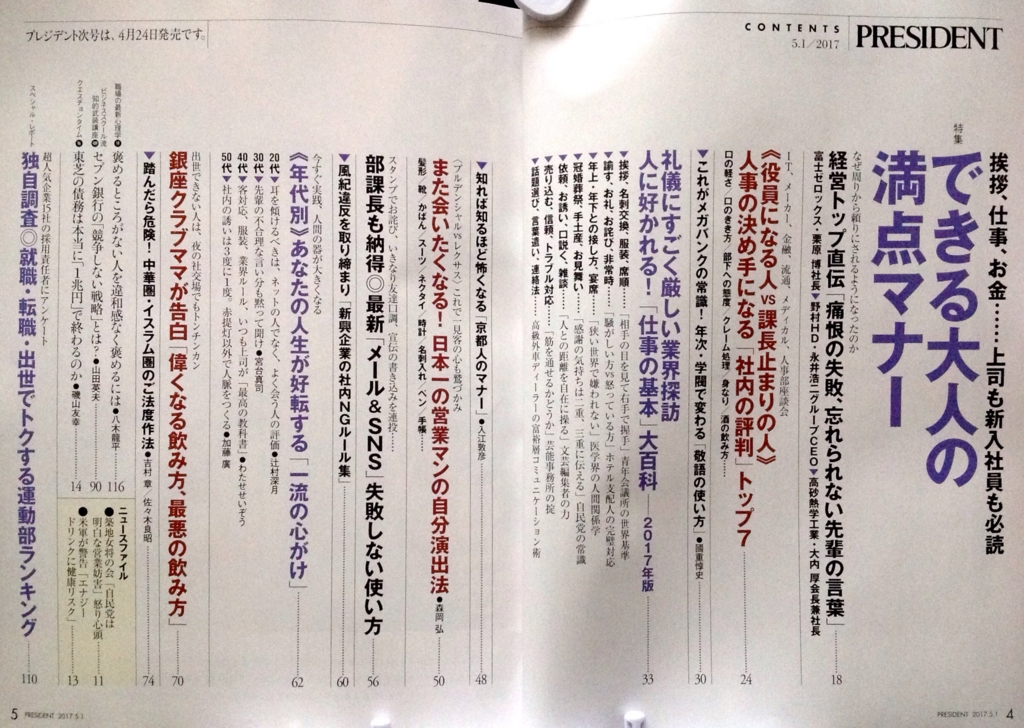 CONTENTS
5.1／2017
PRESIDENT
挨拶、仕事、お金……上司も新入社員も必読
特集
できる大人の
満点マナー
なぜ周りから頼りにされるようになったのか
経営トップ直伝「痛恨の失敗、忘れられない先輩の言葉」
18
富士ゼロックス・栗原 博社長▼野村HD・永井浩二グループCEO▼高砂熱学工業・大内 厚会長兼社長
IT、メーカー、金融、流通、メディカル、人事部座談会
《役員になる人 vs 課長止まりの人》
人事の決め手になる「社内の評判」トップ7
24
口の軽さ／口のきき方／部下への態度／クレーム処理／身なり／酒の飲み方……
▼これがメガバンクの常識！年次・学閥で変わる「敬語の使い方」●國重惇史
30
礼儀にすごく厳しい業界探訪
人に好かれる！「仕事の基本」大百科 2017年版
33
▼挨拶、名刺交換、服装、席順 「相手の目を見て右手で握手」青年会議所の世界基準
▼諭す、お礼、お詫び、非常時 「騒がしい方vs怒っている方」ホテル支配人の完璧対応
▼年上・年下との接し方、宴席 「狭い世界で嫌われない」医学界の人間関係学
▼冠婚葬祭、手土産、お見舞い 「感謝の気持ちは二重、三重に伝える」自民党の常識
▼依頼、お誘い・口説く、雑談 「人との距離を自在に操る」文芸編集者の力
▼売り込む、信頼、トラブル対応 「筋を通せるかどうか」芸能事務所の掟
▼話題選び、言葉遣い、連絡法 高級外車ディーラーの富裕層コミュニケーション術
PRESIDENT 2017.5.1 4
プレジデント次号は、4月24日発売です。
▼知れば知るほど怖くなる「京都人のマナー」●入江敦彦
48
〈プルデンシャルvsレクサス〉これで一見客の心も鷲づかみ
また会いたくなる！日本一の営業マンの自分演出法●森岡 弘
50
髪形／靴／かばん／スーツ／ネクタイ／時計／名刺入れ／ペン／手帳……
スタンプでお詫び、いきなり友達口調、宣伝の書き込みを連投……
部課長も納得◎最新「メール&SNS」失敗しない使い方
56
▼風紀違反を取り締まり「新興企業の社内NGルール集」
60
今すぐ実践、人間の器が大きくなる
《年代別》あなたの人生が好転する「一流の心がけ」
62
20代▼耳を傾けるべきは、ネットの人でなく、よく会う人の評価●辻村深月
30代▼先輩の不合理な言い分も黙って聞け●宮台真司
40代▼客対応、服装、業界ルール、いつも上司が「最高の教科書」●わたせせいぞう
50代▼社内の誘いは3度に1度。赤提灯以外で人脈をつくる●加藤 廣
出世できない人は、夜の社交場でもトンチンカン
銀座クラブママが告白「偉くなる飲み方、最悪の飲み方」
70
▼踏んだら危険！中華圏・イスラム圏のご法度作法●吉村 章 佐々木良昭
74
職場の最新心理学 褒めるところがない人を違和感なく褒めるには●八木龍平
116
ビジネススクール流知的武装講座 セブン銀行の「競争しない戦略」とは？●山田英夫
90
クエスチョンタイム 東芝の債務は本当に「1兆円」で終わるのか●磯山友幸
14
ニュースファイル
●築地女将の会「自民党は
明白な営業妨害」怒り心頭
11
●米軍が警告「エナジー
ドリンクに健康リスク」
13
スペシャル・レポート
超人気企業15社の採用責任者にアンケート
独自調査◎就職・転職・出世でトクする運動部ランキング
110
5 PRESIDENT 2017.5.1